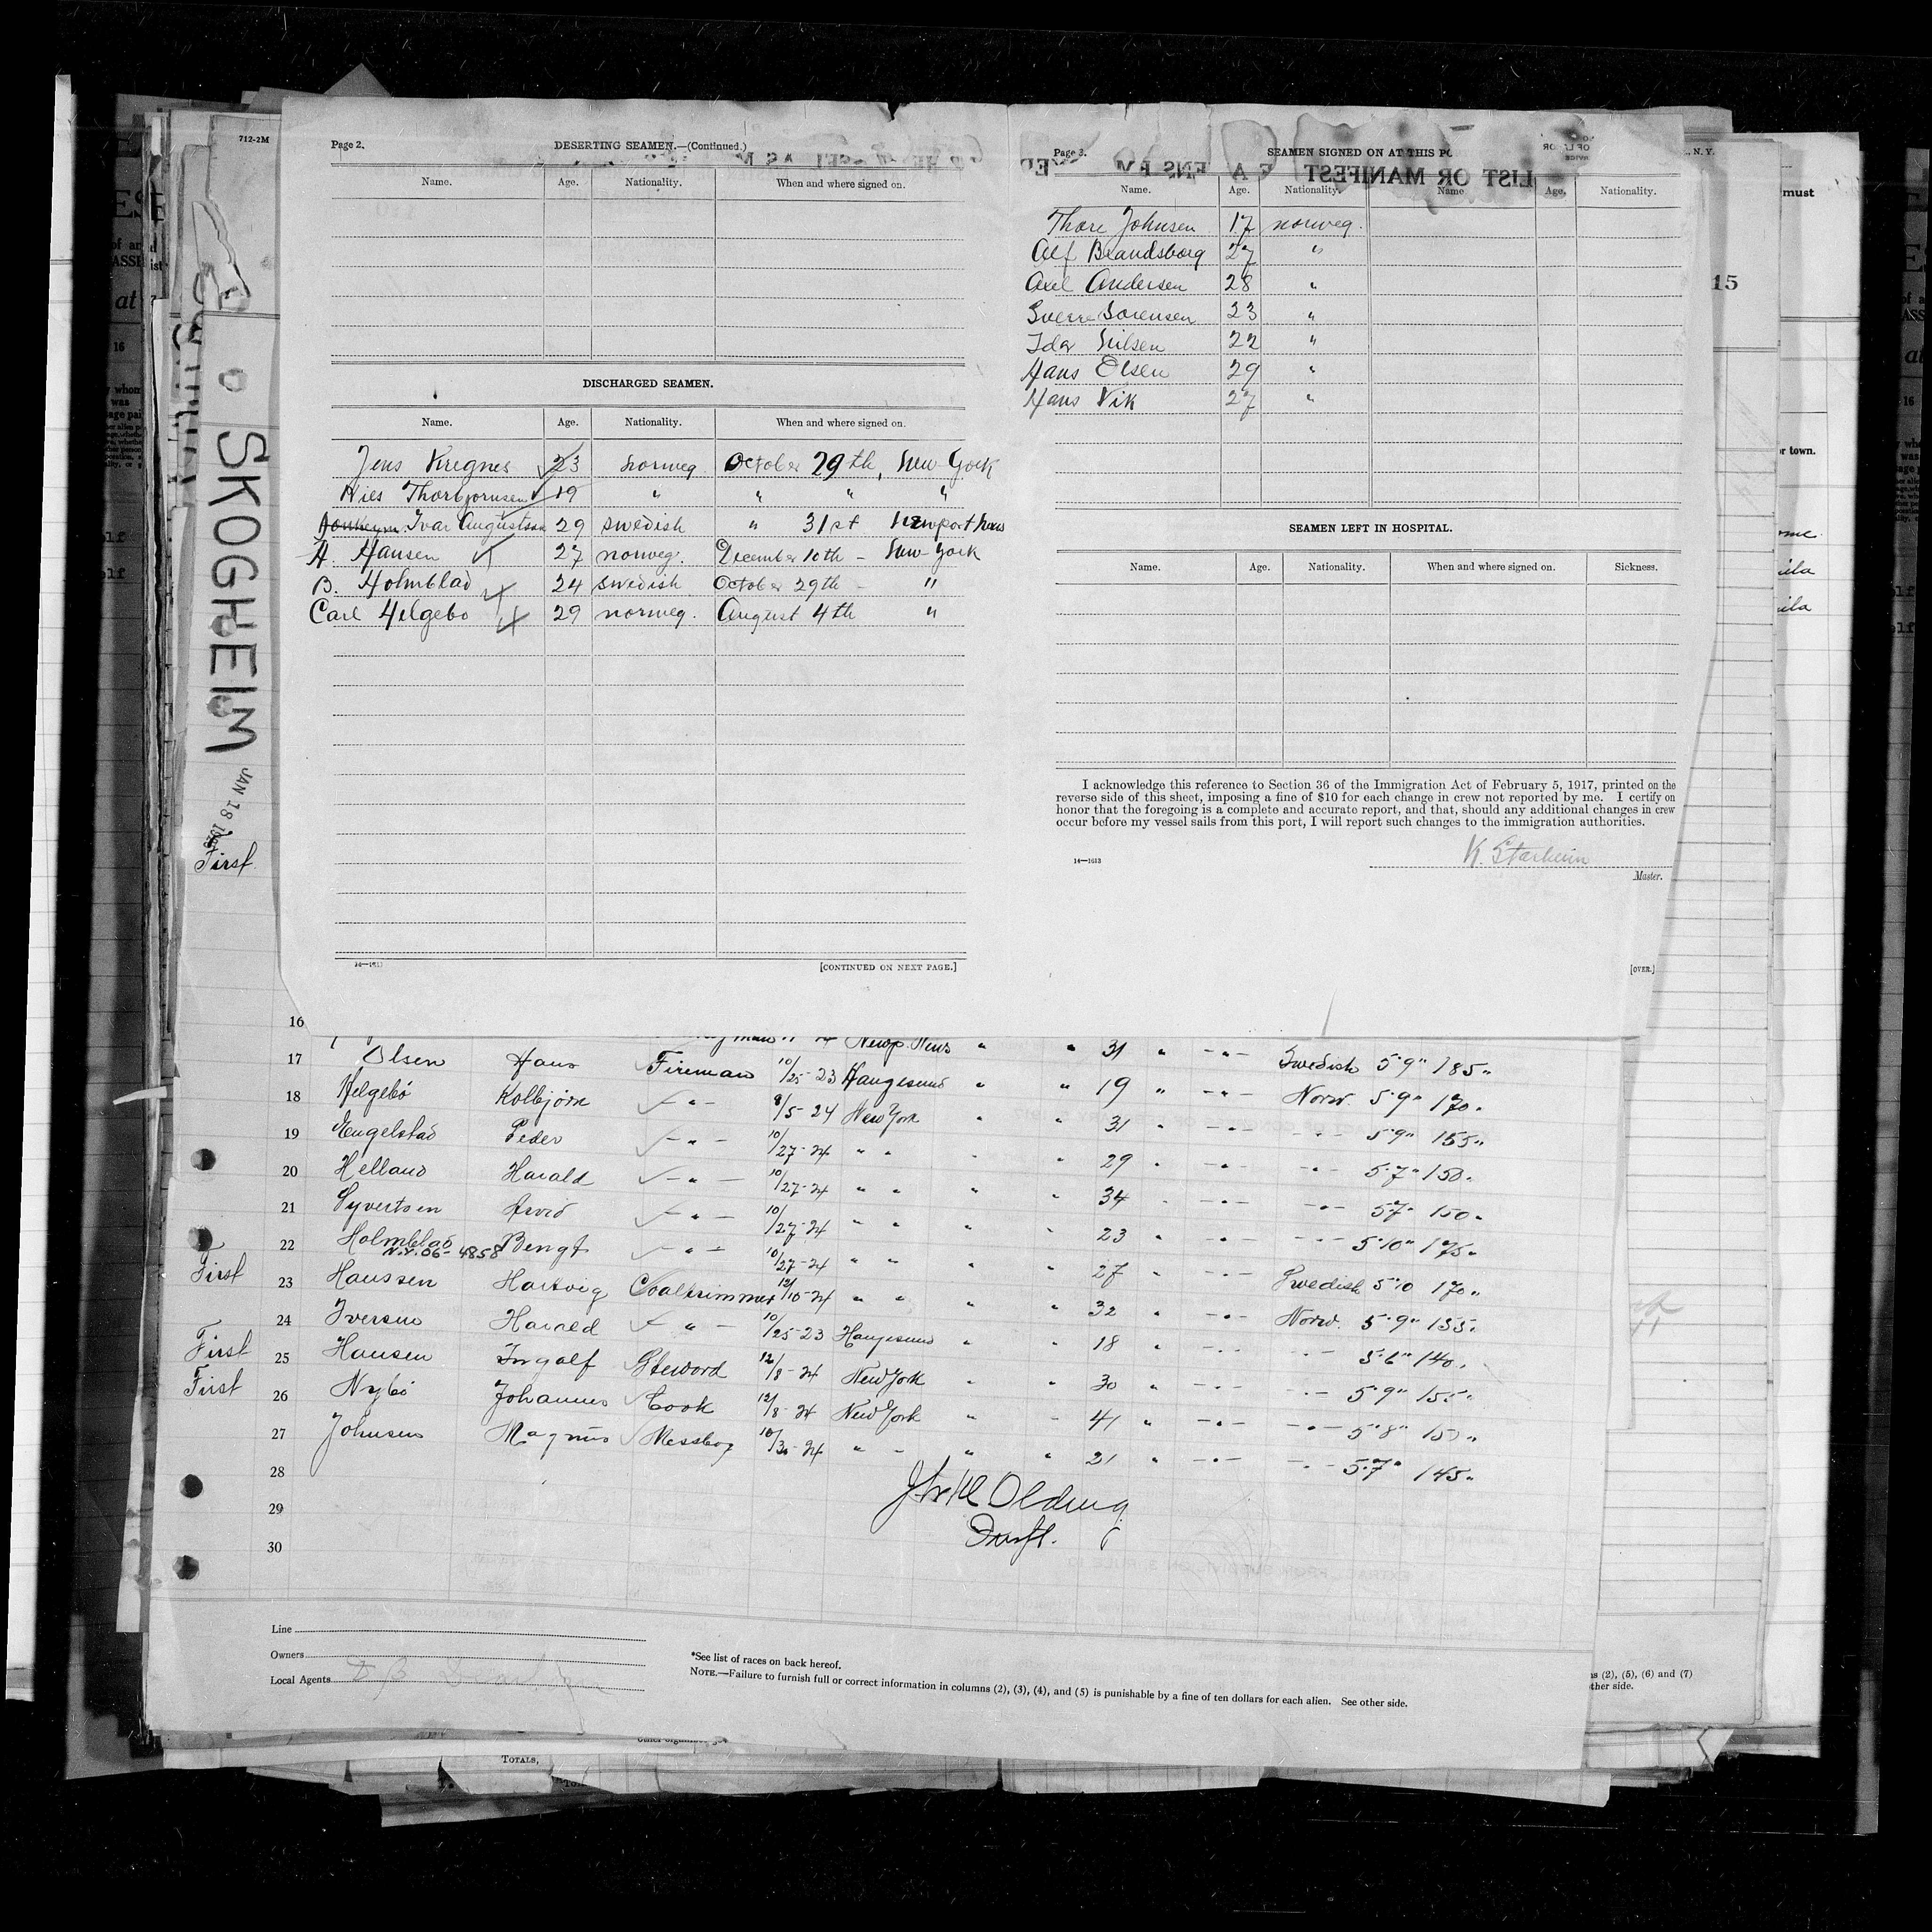 712-2M
SKOGHEIM
JAN 18 1925
First
Page 2.
DESERTING SEAMEN.—(Continued.)
Name. Age. Nationality. When and where signed on.
DISCHARGED SEAMEN.
Name. Age. Nationality. When and where signed on.
Jens Kregnes 23 norweg. October 29th, New York
Nies Thorbjornsen 19 " " " "
Ivar Augustson 29 swedish " 31st Newport News
H. Hansen 27 norweg. December 10th - New York
B. Holmblad 24 swedish October 29th - "
Carl Helgebo 29 norweg. August 4th "
14—1613
[CONTINUED ON NEXT PAGE.]
Page 3.
SEAMEN SIGNED ON AT THIS PO
LIST OR MANIFEST
Name. Age. Nationality. Name Age. Nationality.
Thore Johnsen 17 norweg.
Alf Brandsborg 27 "
Axel Andersen 28 "
Sverre Sorensen 23 "
Idar Nilsen 22 "
Hans Olsen 29 "
Hans Vik 27 "
SEAMEN LEFT IN HOSPITAL.
Name. Age. Nationality. When and where signed on. Sickness.
I acknowledge this reference to Section 36 of the Immigration Act of February 5, 1917, printed on the
reverse side of this sheet, imposing a fine of $10 for each change in crew not reported by me. I certify on
honor that the foregoing is a complete and accurate report, and that, should any additional changes in crew
occur before my vessel sails from this port, I will report such changes to the immigration authorities.
K. Starheim
Master.
14—1613
[OVER.]
N. Y.
must
15
r town.
16
Newp. News " " 31 " -"- Swedish 5'9" 185"
17 Olsen Hans Fireman 10/25-23 Haugesund " " 19 " -"- Norw. 5'9" 170"
18 Helgebö Kolbjörn -"- 8/5-24 New York " " 31 " -"- -"- 5'9" 155"
19 Engelstad Peder -"- 10/27-24 " " " " 29 " -"- -"- 5'7" 150"
20 Helland Harald -"- 10/27-24 " " " " 34 " -"- -"- 5'7" 150"
21 Syvertsen Arvid -"- 10/27-24 " " " " 23 " -"- -"- 5'10" 175"
22 Holmblad Bengt -"- 10/27-24 " " " " 27 " -"- Swedish 5'10 170"
N.Y. 06-4858
First 23 Hanssen Hartvig Coaltrimmer 12/10-24 " " " " 32 " -"- Norw. 5'9" 155"
24 Iversen Harald -"- 10/25-23 Haugesund " " 18 " -"- -"- 5'6" 140"
First 25 Hansen Ingolf Steword 12/8-24 New York " " 30 " -"- -"- 5'9" 155"
First 26 Nybö Johannes Cook 12/8-24 New York " " 41 " -"- -"- 5'8" 150"
27 Johnsen Magnus Messboy 10/30-24 " " " " 21 " -"- -"- 5'7" 145"
28
29
30
Line
Owners
Local Agents
*See list of races on back hereof.
NOTE.—Failure to furnish full or correct information in columns (2), (3), (4), and (5) is punishable by a fine of ten dollars for each alien. See other side.
s (2), (5), (6) and (7)
ther side.
TOTALS,